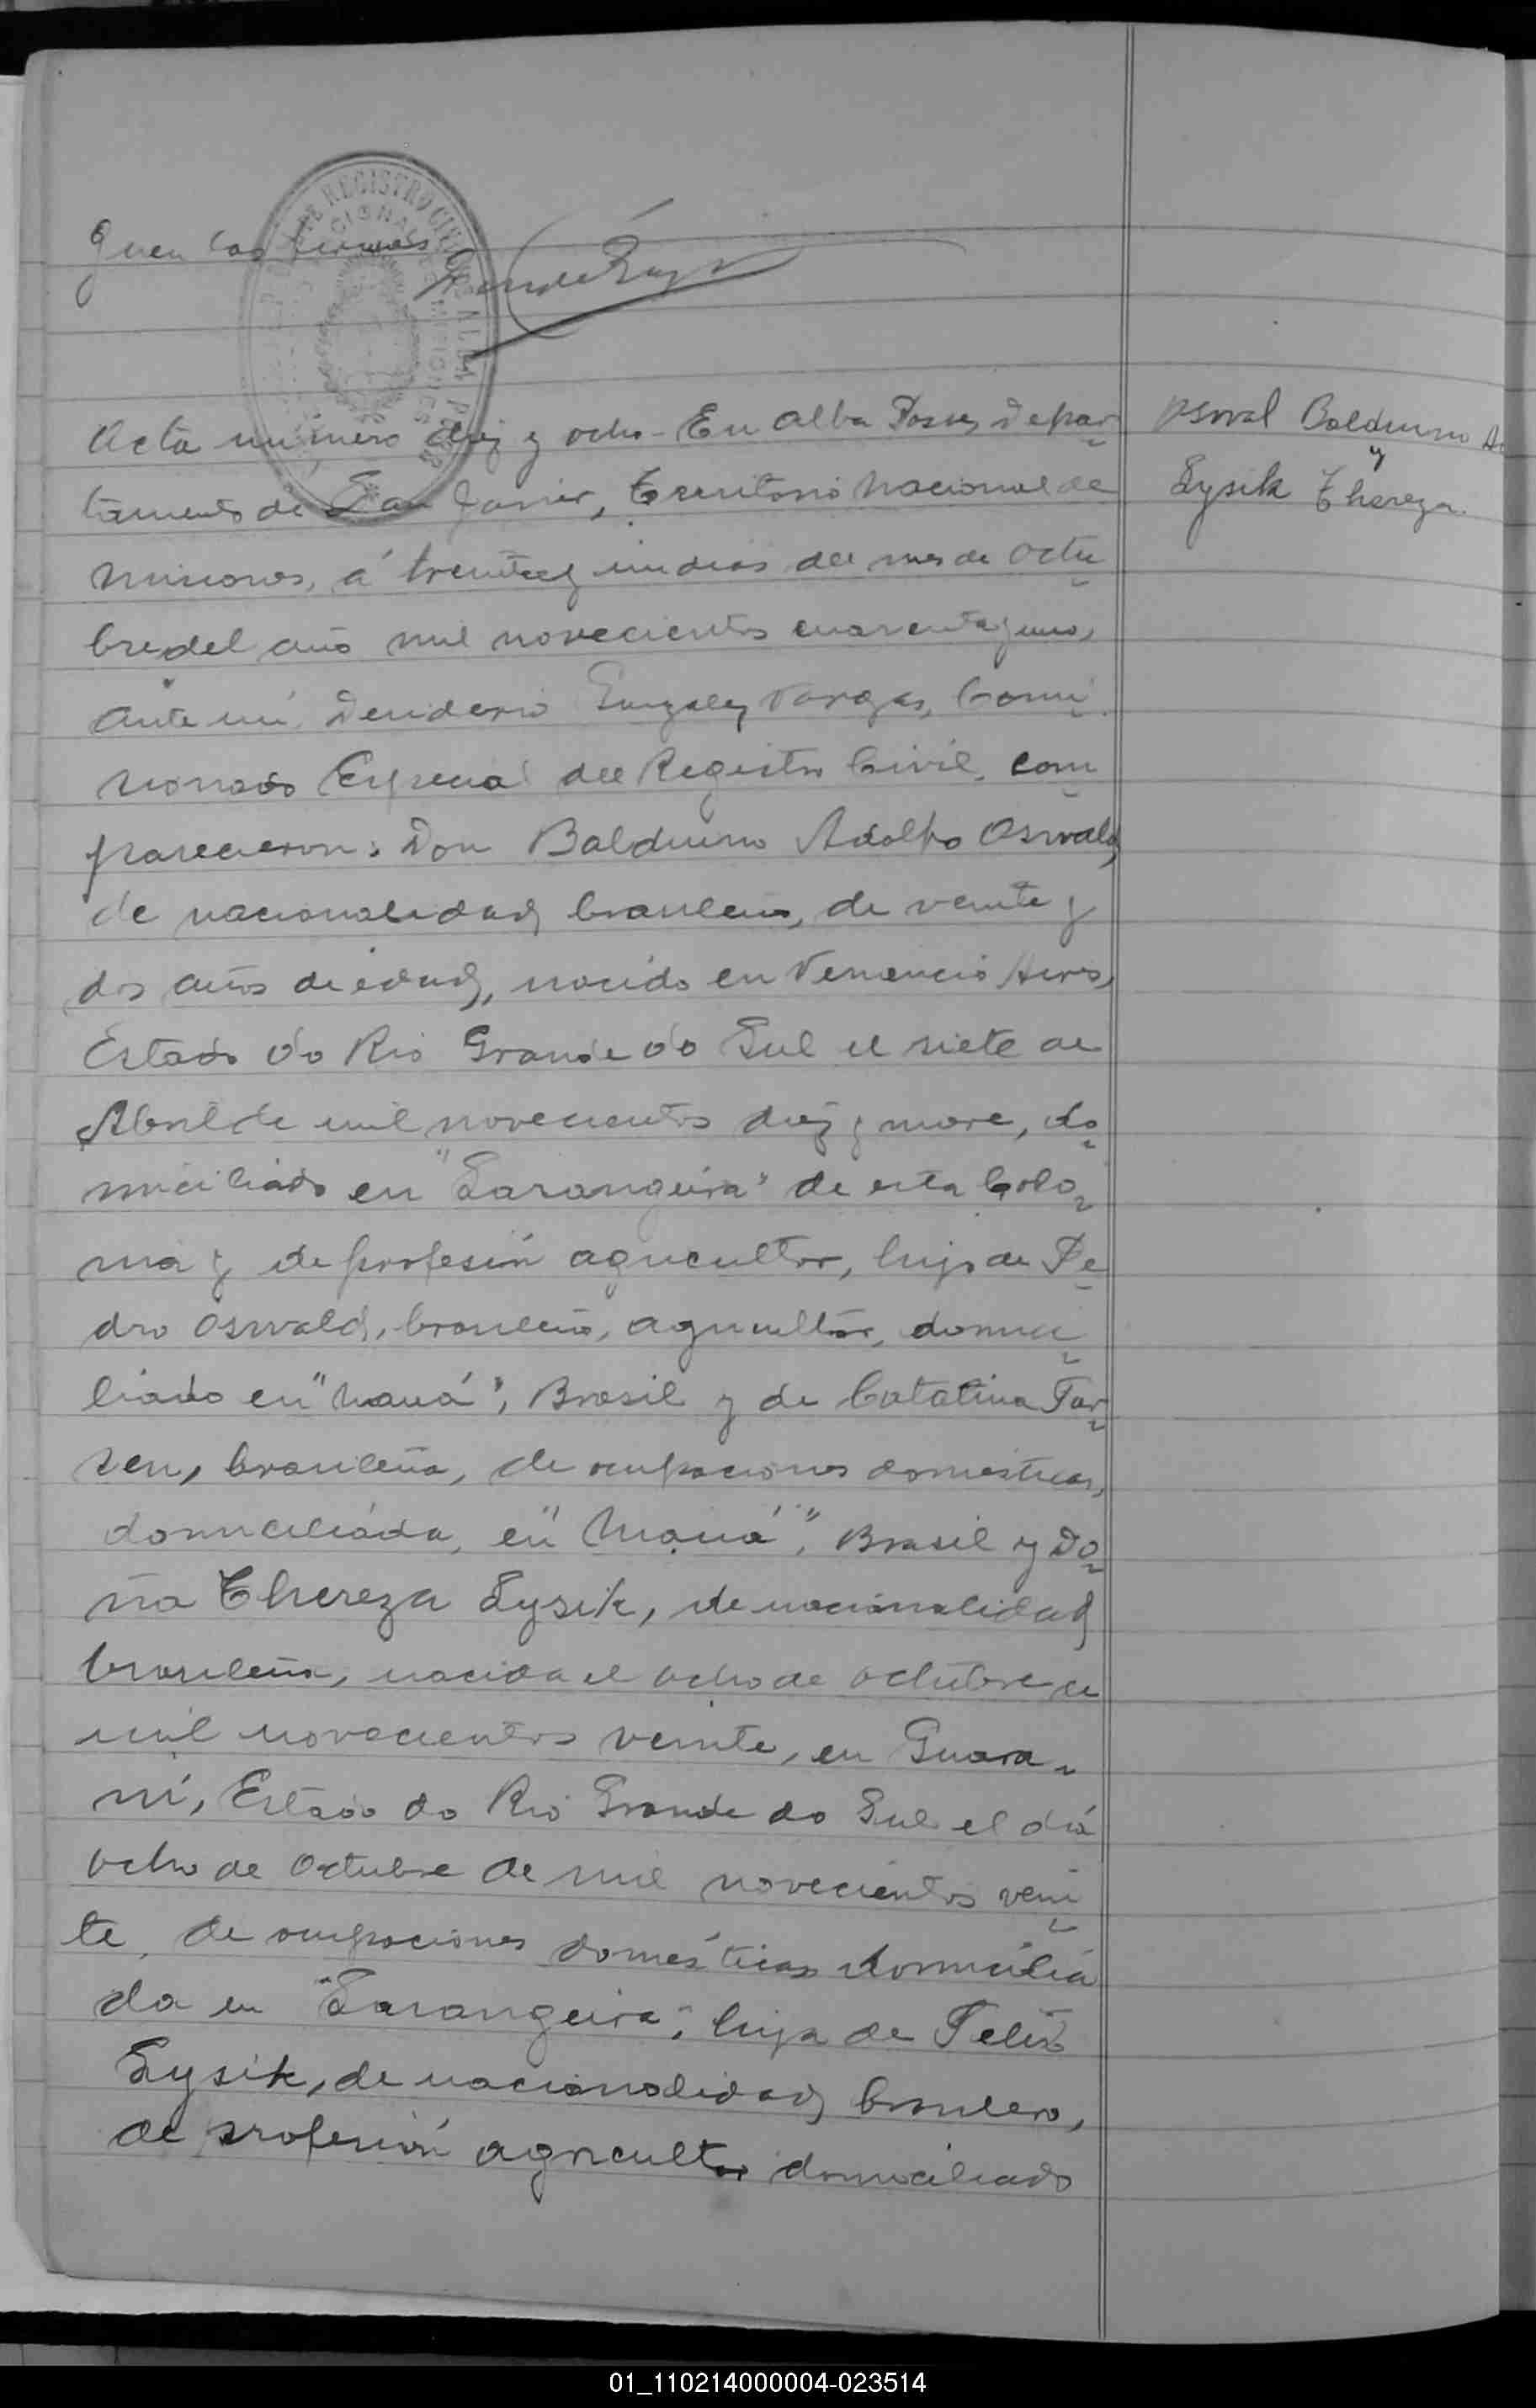 quen las firmas
Acta número diez y ocho - En Alba Posse, Depar
tamento de San Javier, Territorio Nacional de
Misiones, á treinta y un dias del mes de Octu
bre del año mil novecientos cuarenta y uno,
ante mí, Desiderio Gonzalez Vargas, Comi
sionado Especial del Registro Civil, com
parecieron: Don Balduino Adolfo Oswald,
de nacionalidad brasileña, de veinte y
dos años de edad, nacido en Venancio Aires,
Estado do Rio Grande do Sul el siete de
Abril de mil novecientos diez y nueve, do
miciliado en "Larangeira" de esta Colo
nia y de profesión agricultor, hijo de Pe
dro Oswald, brasileño, agricultor, domici
liado en "Mauá", Brasil y de Catalina Tor
sen, brasileña, de ocupaciones domesticas,
domiciliada, en "Mauá", Brasil y Do
ña Thereza Lysik, de nacionalidad
brasileña, nacida el ocho de octubre de
mil novecientos veinte, en Guara
ní, Estado do Rio Grande do Sul el día
ocho de Octubre de mil novecientos vein
te, de ocupaciones domésticas domicilia
da en "Larangeira", hija de Felix
Lysik, de nacionalidad brasilero,
de profesión agricultor domiciliado
Osval Balduino
y
Lysik Thereza
REGISTRO CIVIL
ALBA POSSE
MISIONES
01_110214000004-023514